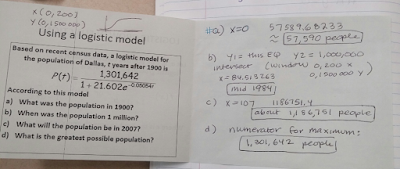 X(0,200)
Y(0,1500000)
Using a logistic model
Based on recent census data, a logistic model for
the population of Dallas, t years after 1900 is
P(t) = 1,301,642
1 + 21.602e^-0.05054t
According to this model
a) What was the population in 1900?
b) When was the population 1 million?
c) What will the population be in 2007?
d) What is the greatest possible population?
#a) x=0 57589.68233
≈ 57,590 people
b) y1 = this EQ y2 = 1,000,000
intersect (window 0,200 x
0,1500,000 y)
x = 84.513263
mid 1984
c) x=107 1186751.4
about 1,186,751 people
d) numerator for maximum:
1,301,642 people